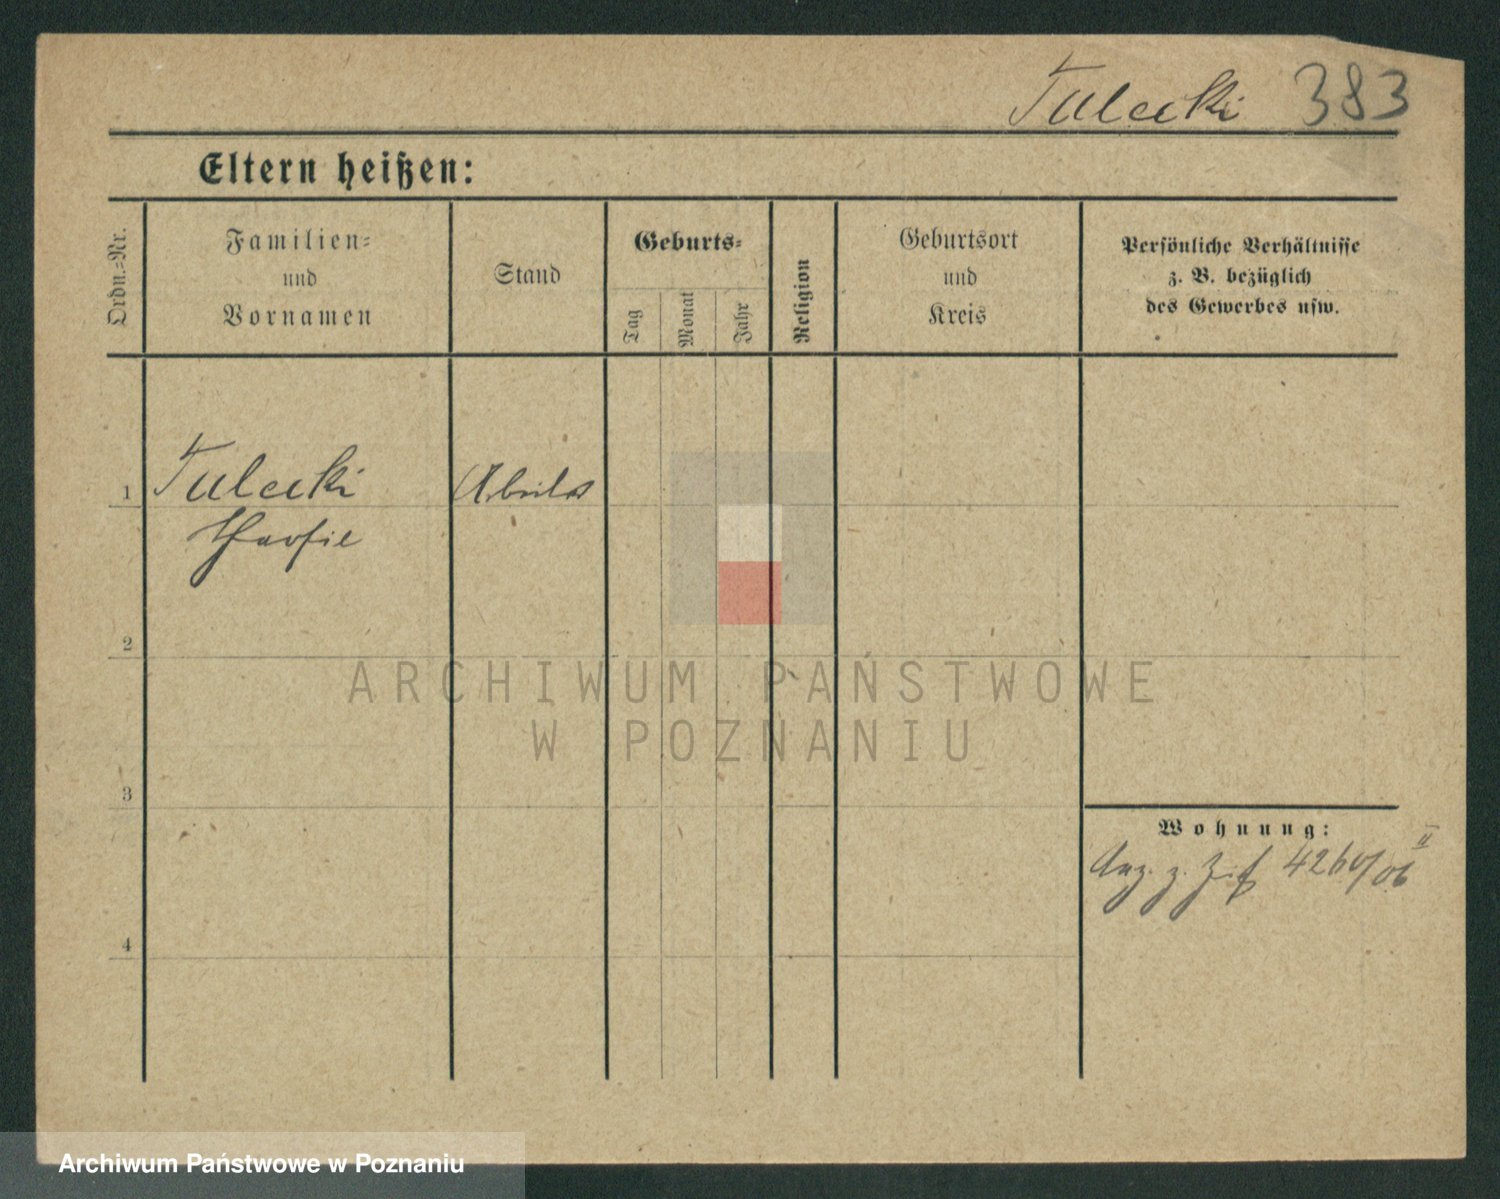 Tulecki 383
Eltern heißen:
Ordn.-Nr.
Familien-
und
Vornamen
Stand
Geburts-
Tag
Monat
Jahr
Religion
Geburtsort
und
Kreis
Persönliche Verhältnisse
z. B. bezüglich
des Gewerbes usw.
1
Tulecki
2
3
4
Wohnung:
II
ARCHIWUM PAŃSTWOWE
W POZNANIU
Archiwum Państwowe w Poznaniu